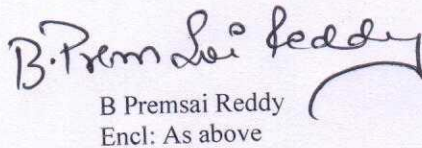 B. Prem Sai Reddy
B Premsai Reddy
Encl: As above